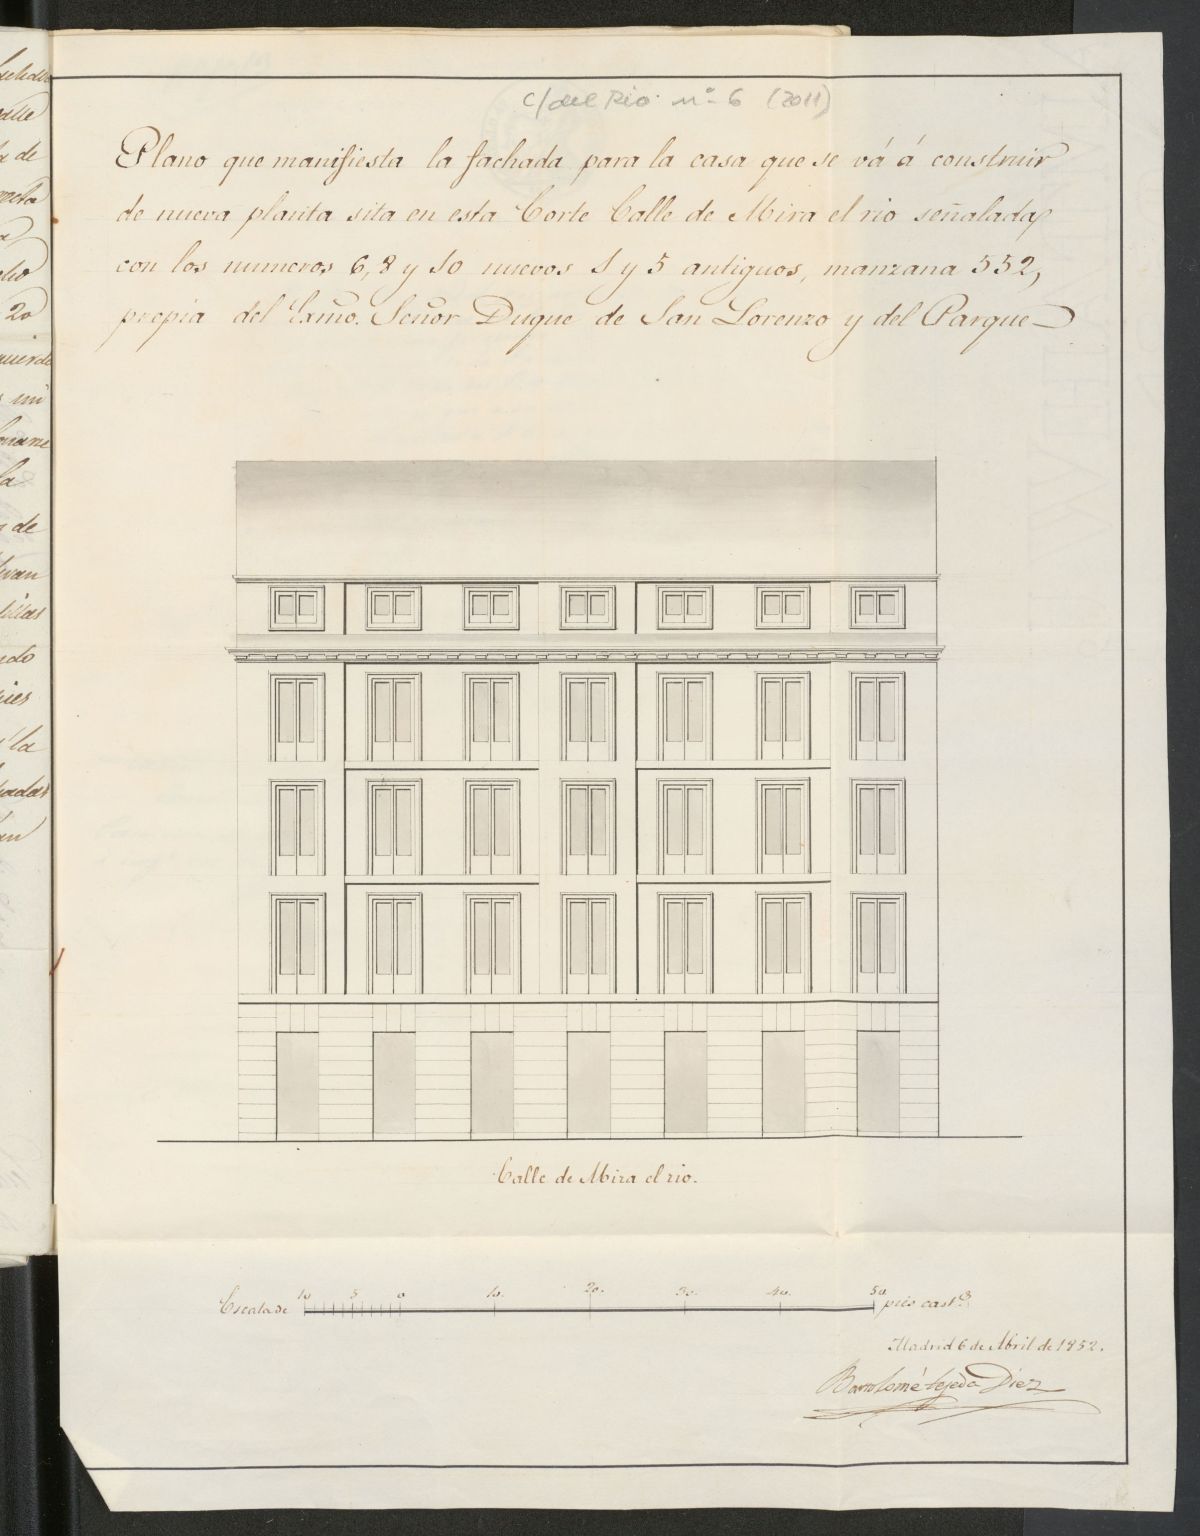 C/ del Rio nº 6 (2011)
Plano que manifiesta la fachada para la casa que se vá á construir
de nueva planta sita en esta Corte Calle de Mira el rio señalada
con los numeros 6, 8 y 10 nuevos 1 y 5 antiguos, manzana 552,
propia del Exmo. Señor Duque de San Lorenzo y del Parque
Calle de Mira el rio.
Escala de 10 5 0 10. 20. 30. 40. 50 pies cast.s
Madrid 6 de Abril de 1852.
Bartolomé Tejeda Diez
valle
de
20
un
la
de
ndo
pies
la